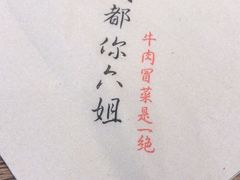 都你六姐
牛肉冒菜是一绝